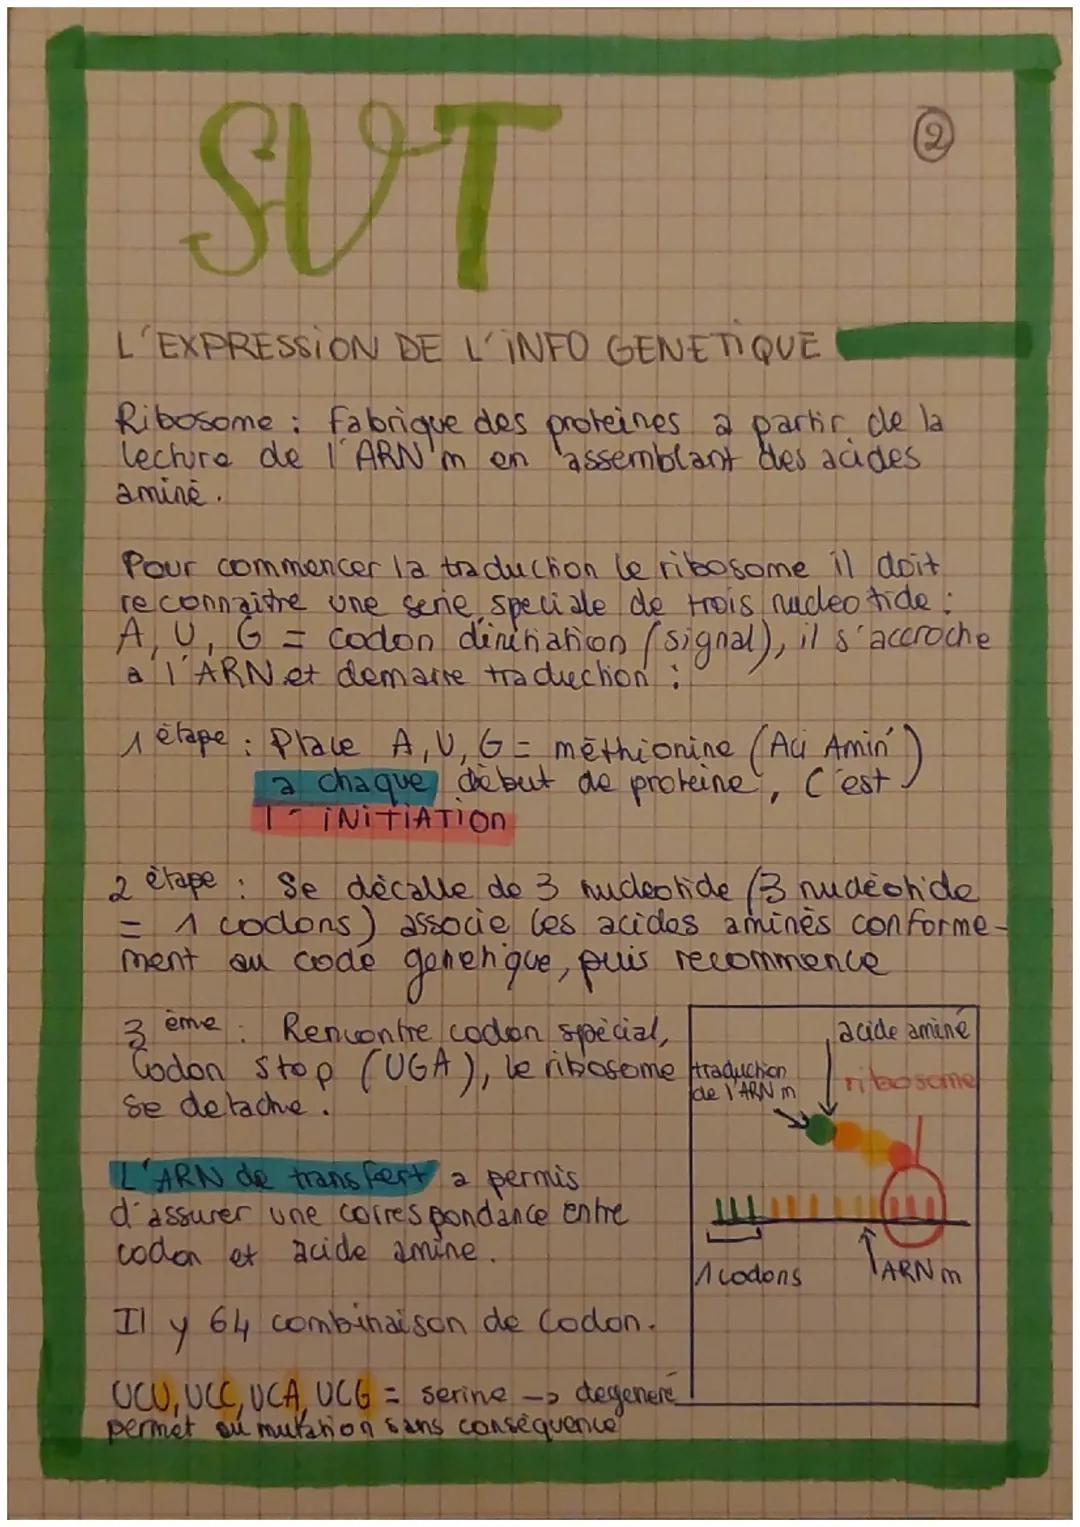 SVT
2
L'EXPRESSiON DE L'iNFO GENETiQUE
Ribosome : Fabrique des proteines a partir de la
lecture de l'ARN m en assemblant des acides
aminé.
Pour commencer la traduction le ribosome il doit
reconnaitre une serie speciale de trois nucleotide :
A, U, G = codon dinitiation (signal), il s'accroche
a l'ARN et demarre traduction :
1 étape : Place A, U, G = méthionine (Aci Amin)
a chaque début de proteine, C'est
l'iNiTiATion
2 étape : Se décalle de 3 nucleotide (3 nucléotide
= 1 codons) associe les acides aminés conforme-
ment au code genetique, puis recommence
3 ème : Rencontre codon spécial,
Codon stop (UGA), le ribosome
se detache.
L'ARN de transfert a permis
d'assurer une correspondance entre
codon et acide amine.
Il y 64 combinaison de Codon.
UCU, UCC, UCA, UCG = serine -> degeneré
permet au mutation sans conséquence
acide aminé
traduction
de l'ARN m
ribosome
1 codons
ARN m